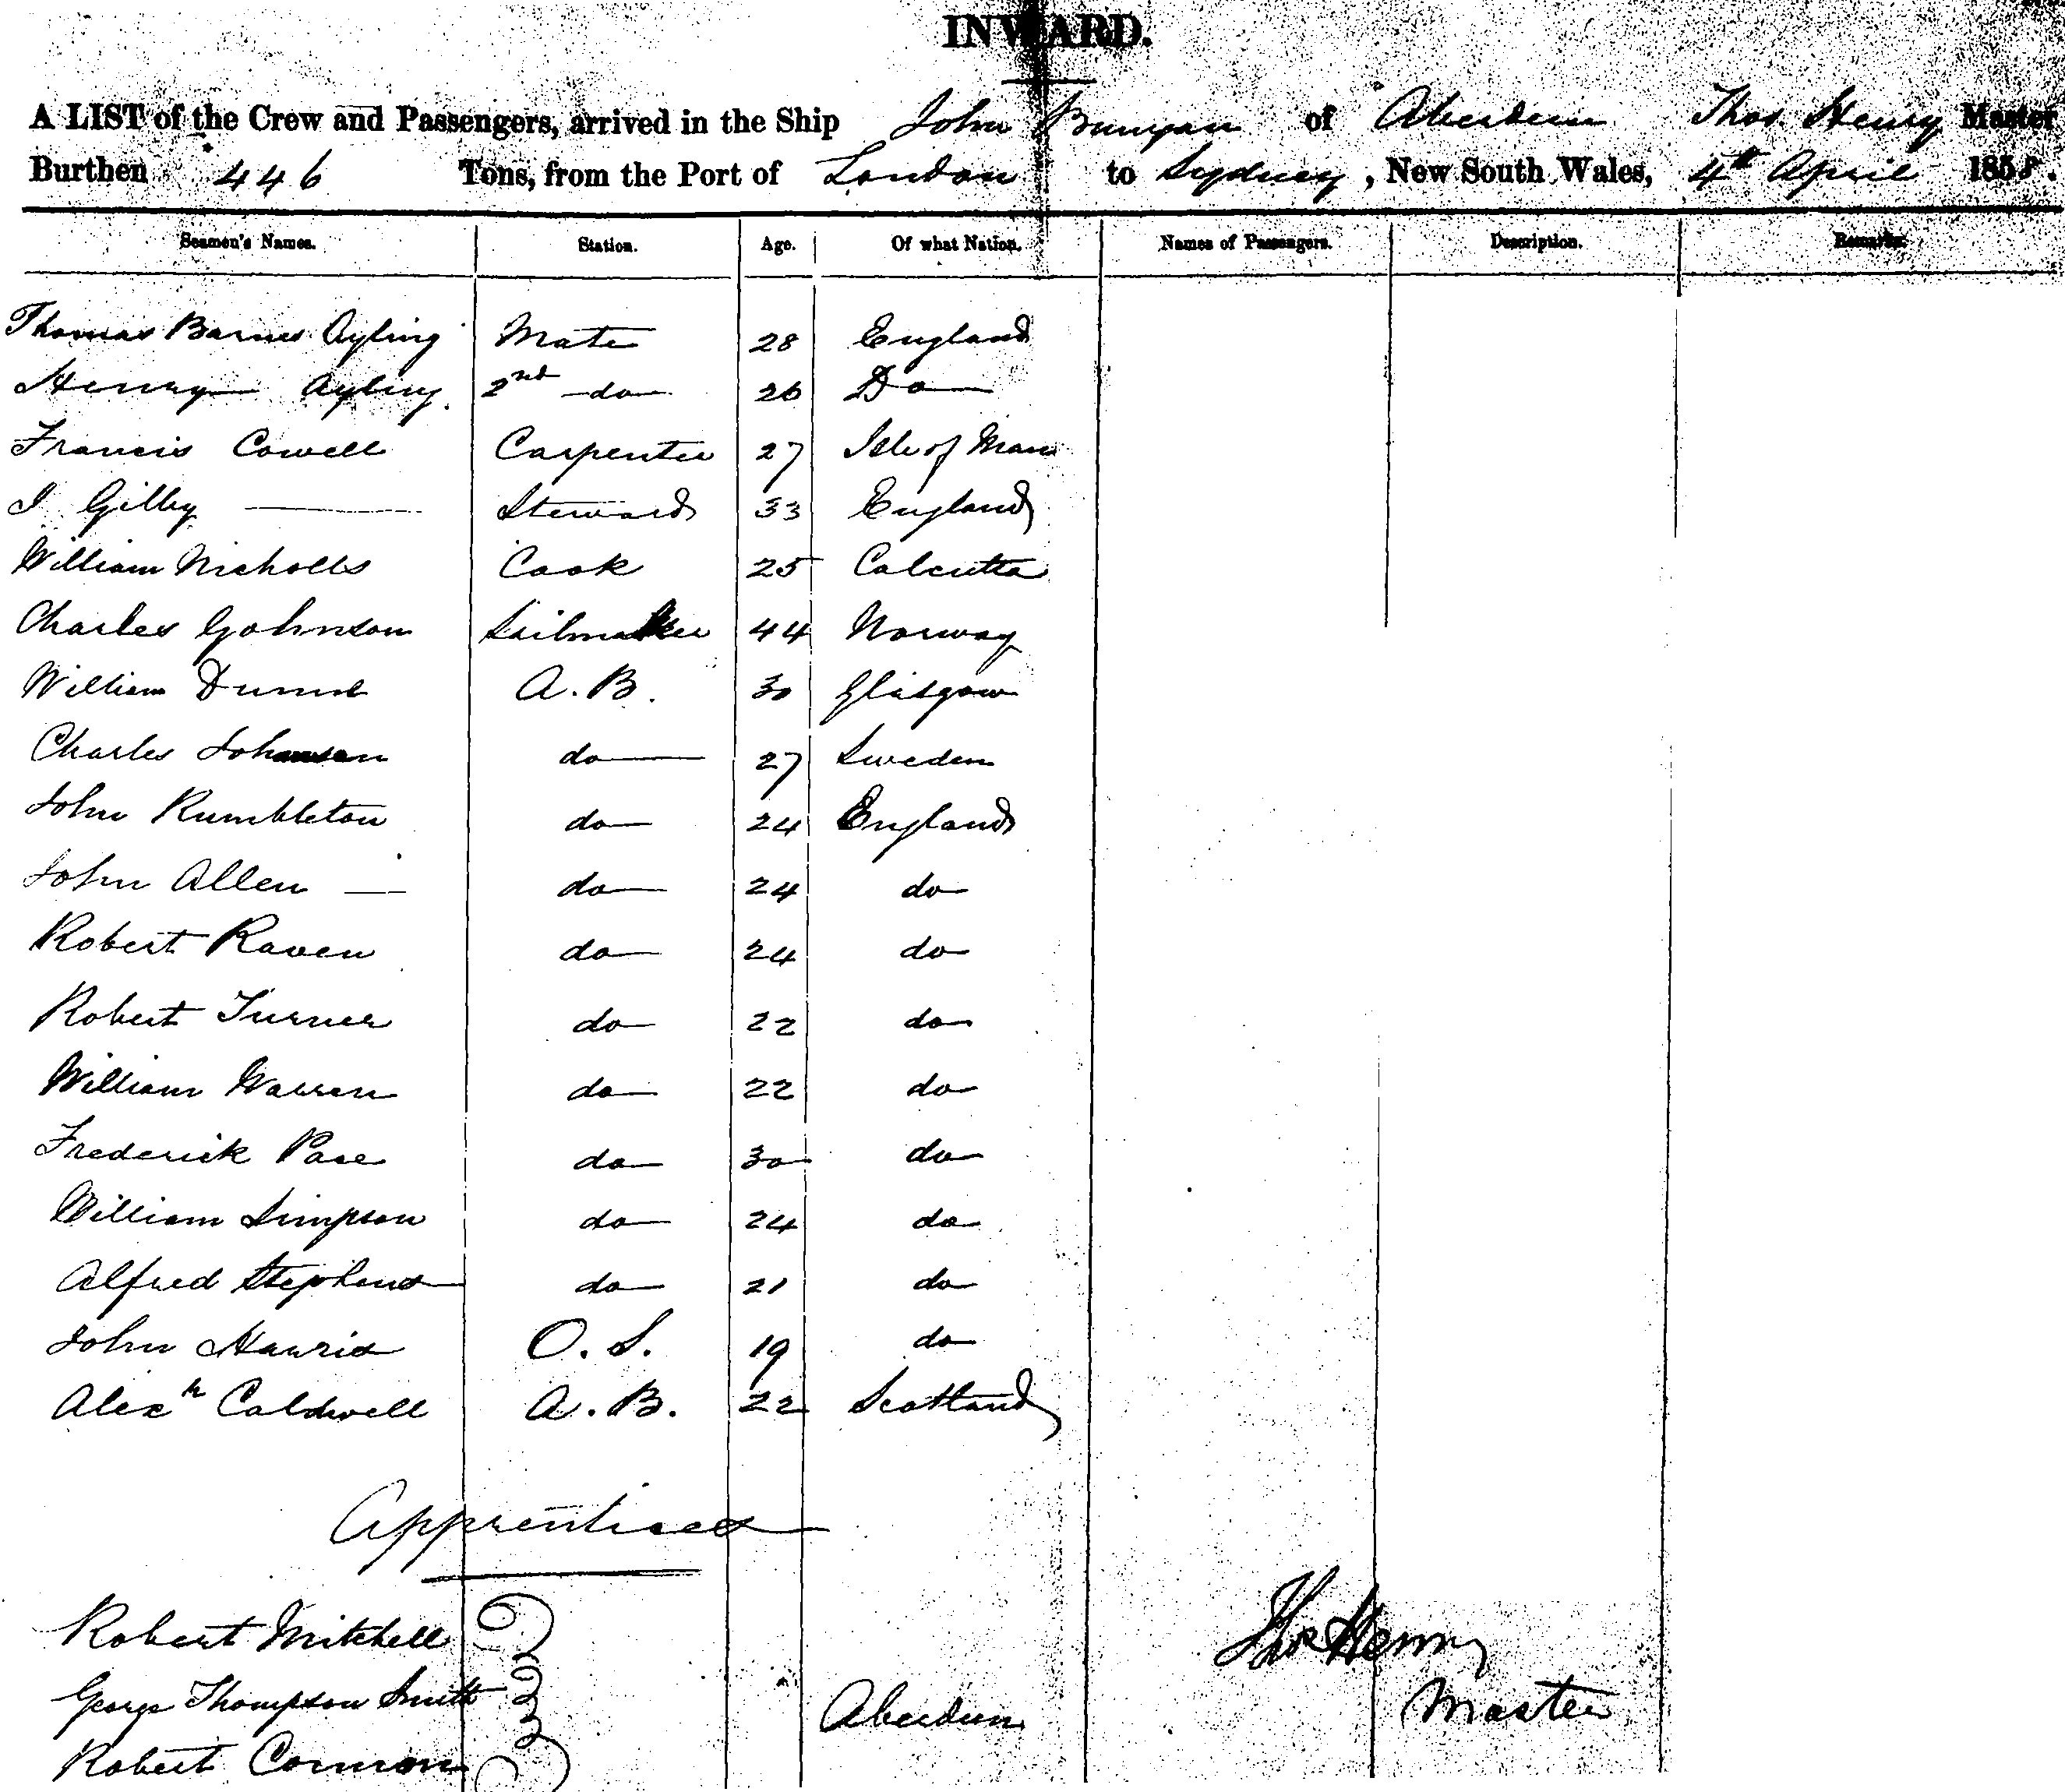 INWARD.
A LIST of the Crew and Passengers, arrived in the Ship John Bunyan of Aberdeen Thos Henry Master
Burthen 446 Tons, from the Port of London to Sydney, New South Wales, 4th April 1858.
Seamen's Names. Station. Age. Of what Nation. Names of Passengers. Description. Remarks.
Thomas Barnes Ayling Mate 28 England
Henry Ayling 2nd do 26 Do
Francis Cowell Carpenter 27 Isle of Man
I Gilby Steward 33 England
William Nicholls Cook 25 Calcutta
Charles Gohnson Sailmaker 44 Norway
William A.B. 30 Glasgow
Charles Johansen do 27 Sweden
John Rumbleton do 24 England
John Allen do 24 do
Robert Raven do 24 do
Robert Turner do 22 do
William Warren do 22 do
Frederick Pace do 30 do
William Simpson do 24 do
Alfred Stephens do 21 do
John Harris O.S. 19 do
Alexr Caldwell A.B. 22 Scotland
Apprentices
Robert Mitchell
Thos Henry
George Thompson Smith Aberdeen Master
Robert